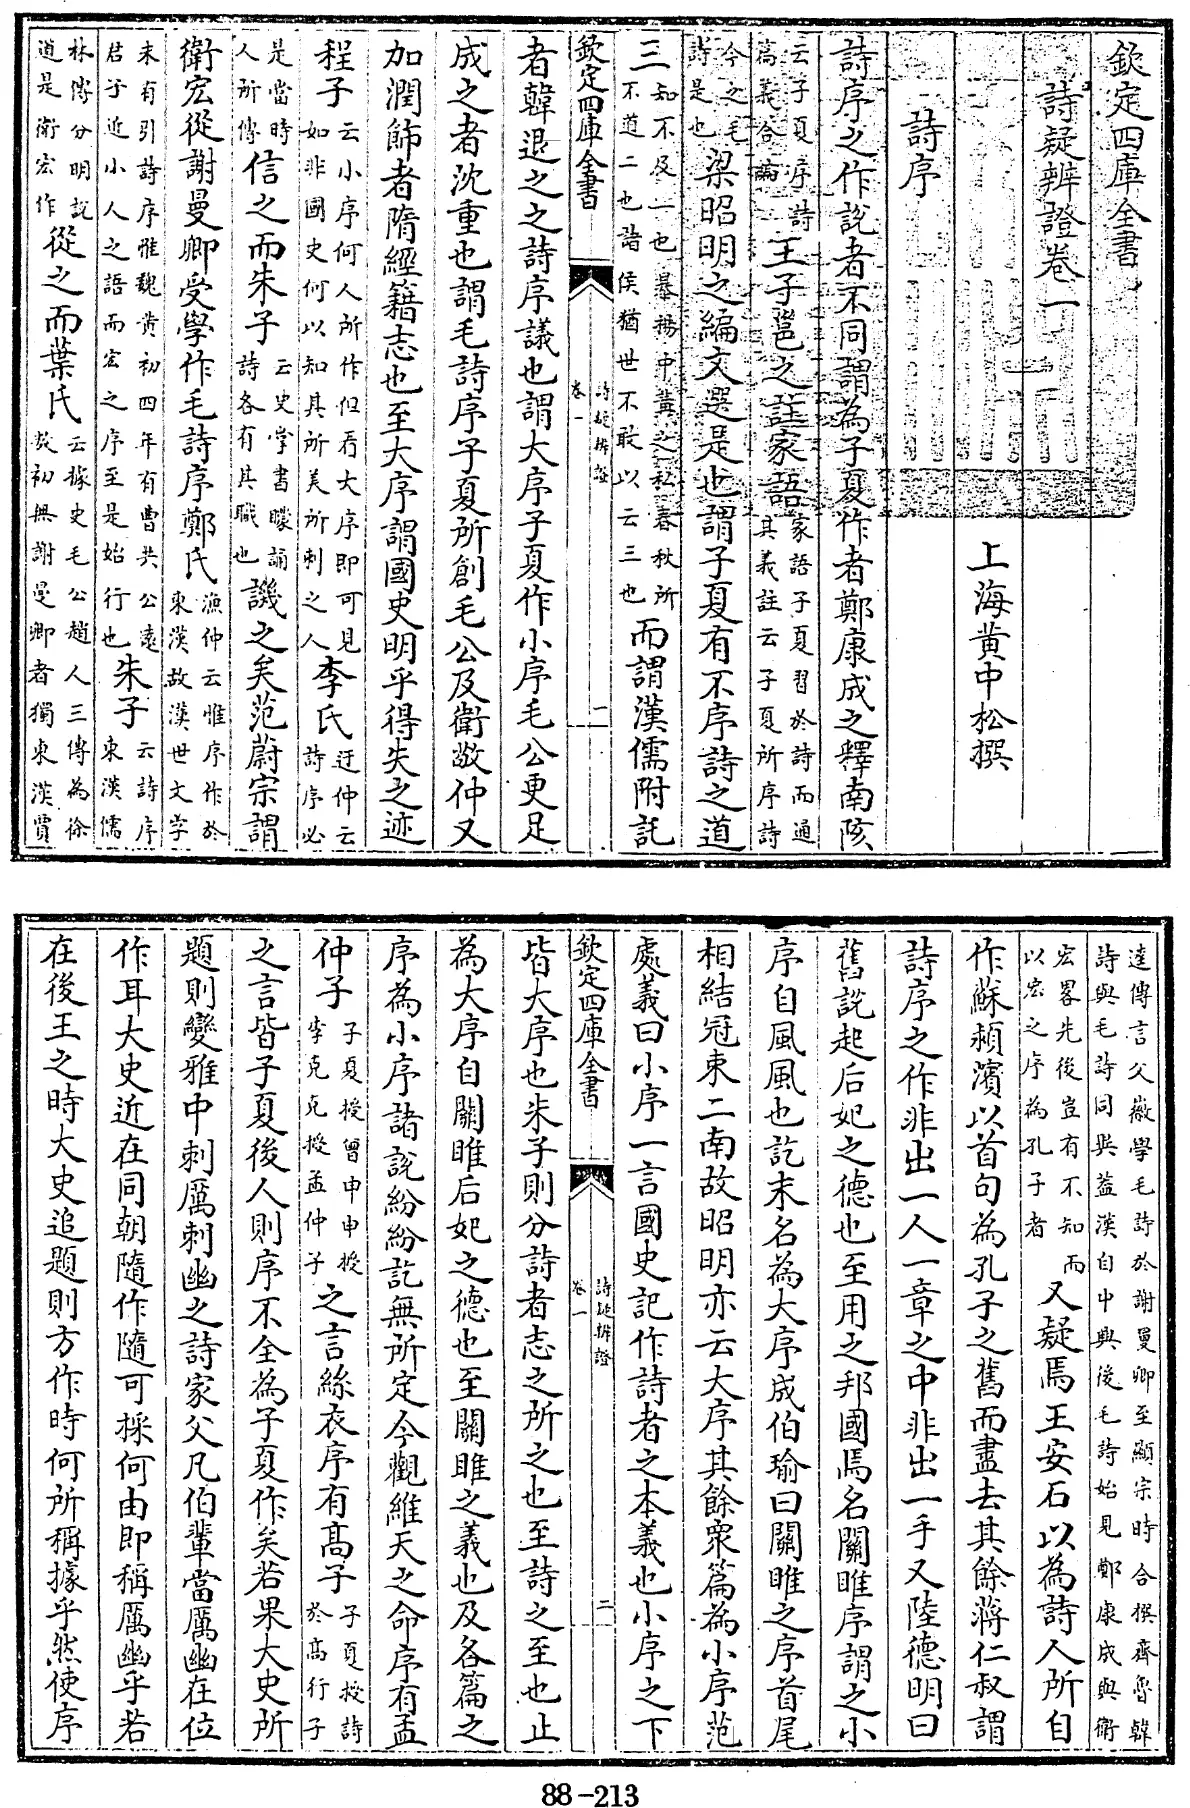 欽定四庫全書
詩疑辨證卷一
上海黄中松撰
詩序
詩序之作説者不同謂為子夏作者鄭康成之釋南陔
云子夏序詩篇義合編王子邕之註家語家語子夏習於詩而通其義註云子夏所序詩
今之毛詩是也梁昭明之編文選是也謂子夏有不序詩之道
三知不及一也暴揚中冓之私春秋所不道二也諸侯猶世不敢以云三也而謂漢儒附託
欽定四庫全書 詩疑辨證 卷一 一
者韓退之之詩序議也謂大序子夏作小序毛公更足
成之者沈重也謂毛詩序子夏所創毛公及衛敬仲又
加潤飾者隋經籍志也至大序謂國史明乎得失之迹
程子云小序何人所作但看大序即可見如非國史何以知其所美所刺之人李氏迂仲云詩序必
是當時人所傳信之而朱子云史掌書矇誦詩各有其職也譏之矣范蔚宗謂
衛宏從謝曼卿受學作毛詩序鄭氏漁仲云惟序作於東漢故漢世文字
未有引詩序惟魏黄初四年有曹共公遠君子近小人之語而宏之序至是始行也朱子云詩序東漢儒
林傳分明説道是衛宏作從之而葉氏云據史毛公趙人三傳為徐敖初無謝曼卿者獨東漢賈
逵傳言父徽學毛詩於謝曼卿至顯宗時合撰齊魯韓詩與毛詩同異蓋漢自中興後毛詩始見鄭康成與衛
宏畧先後豈有不知而以宏之序為孔子者又疑焉王安石以為詩人所自
作蘇潁濱以首句為孔子之舊而盡去其餘蔣仁叔謂
詩序之作非出一人一章之中非出一手又陸德明曰
舊説起后妃之德也至用之邦國焉名關雎序謂之小
序自風風也訖末名為大序成伯瑜曰關雎之序首尾
相結冠束二南故昭明亦云大序其餘衆篇為小序范
處義曰小序一言國史記作詩者之本義也小序之下
欽定四庫全書 詩疑辨證 卷一 二
皆大序也朱子則分詩者志之所之也至詩之至也止
為大序自關雎后妃之德也至關雎之義也及各篇之
序為小序諸說紛紛訖無所定今觀維天之命序有孟
仲子子夏授曾申申授李克克授孟仲子之言絲衣序有高子子夏授詩於高行子
之言皆子夏後人則序不全為子夏作矣若果大史所
題則變雅中刺厲刺幽之詩家父凡伯輩當厲幽在位
作耳大史近在同朝隨作隨可採何由即稱厲幽乎若
在後王之時大史追題則方作時何所稱據乎然使序
88-213